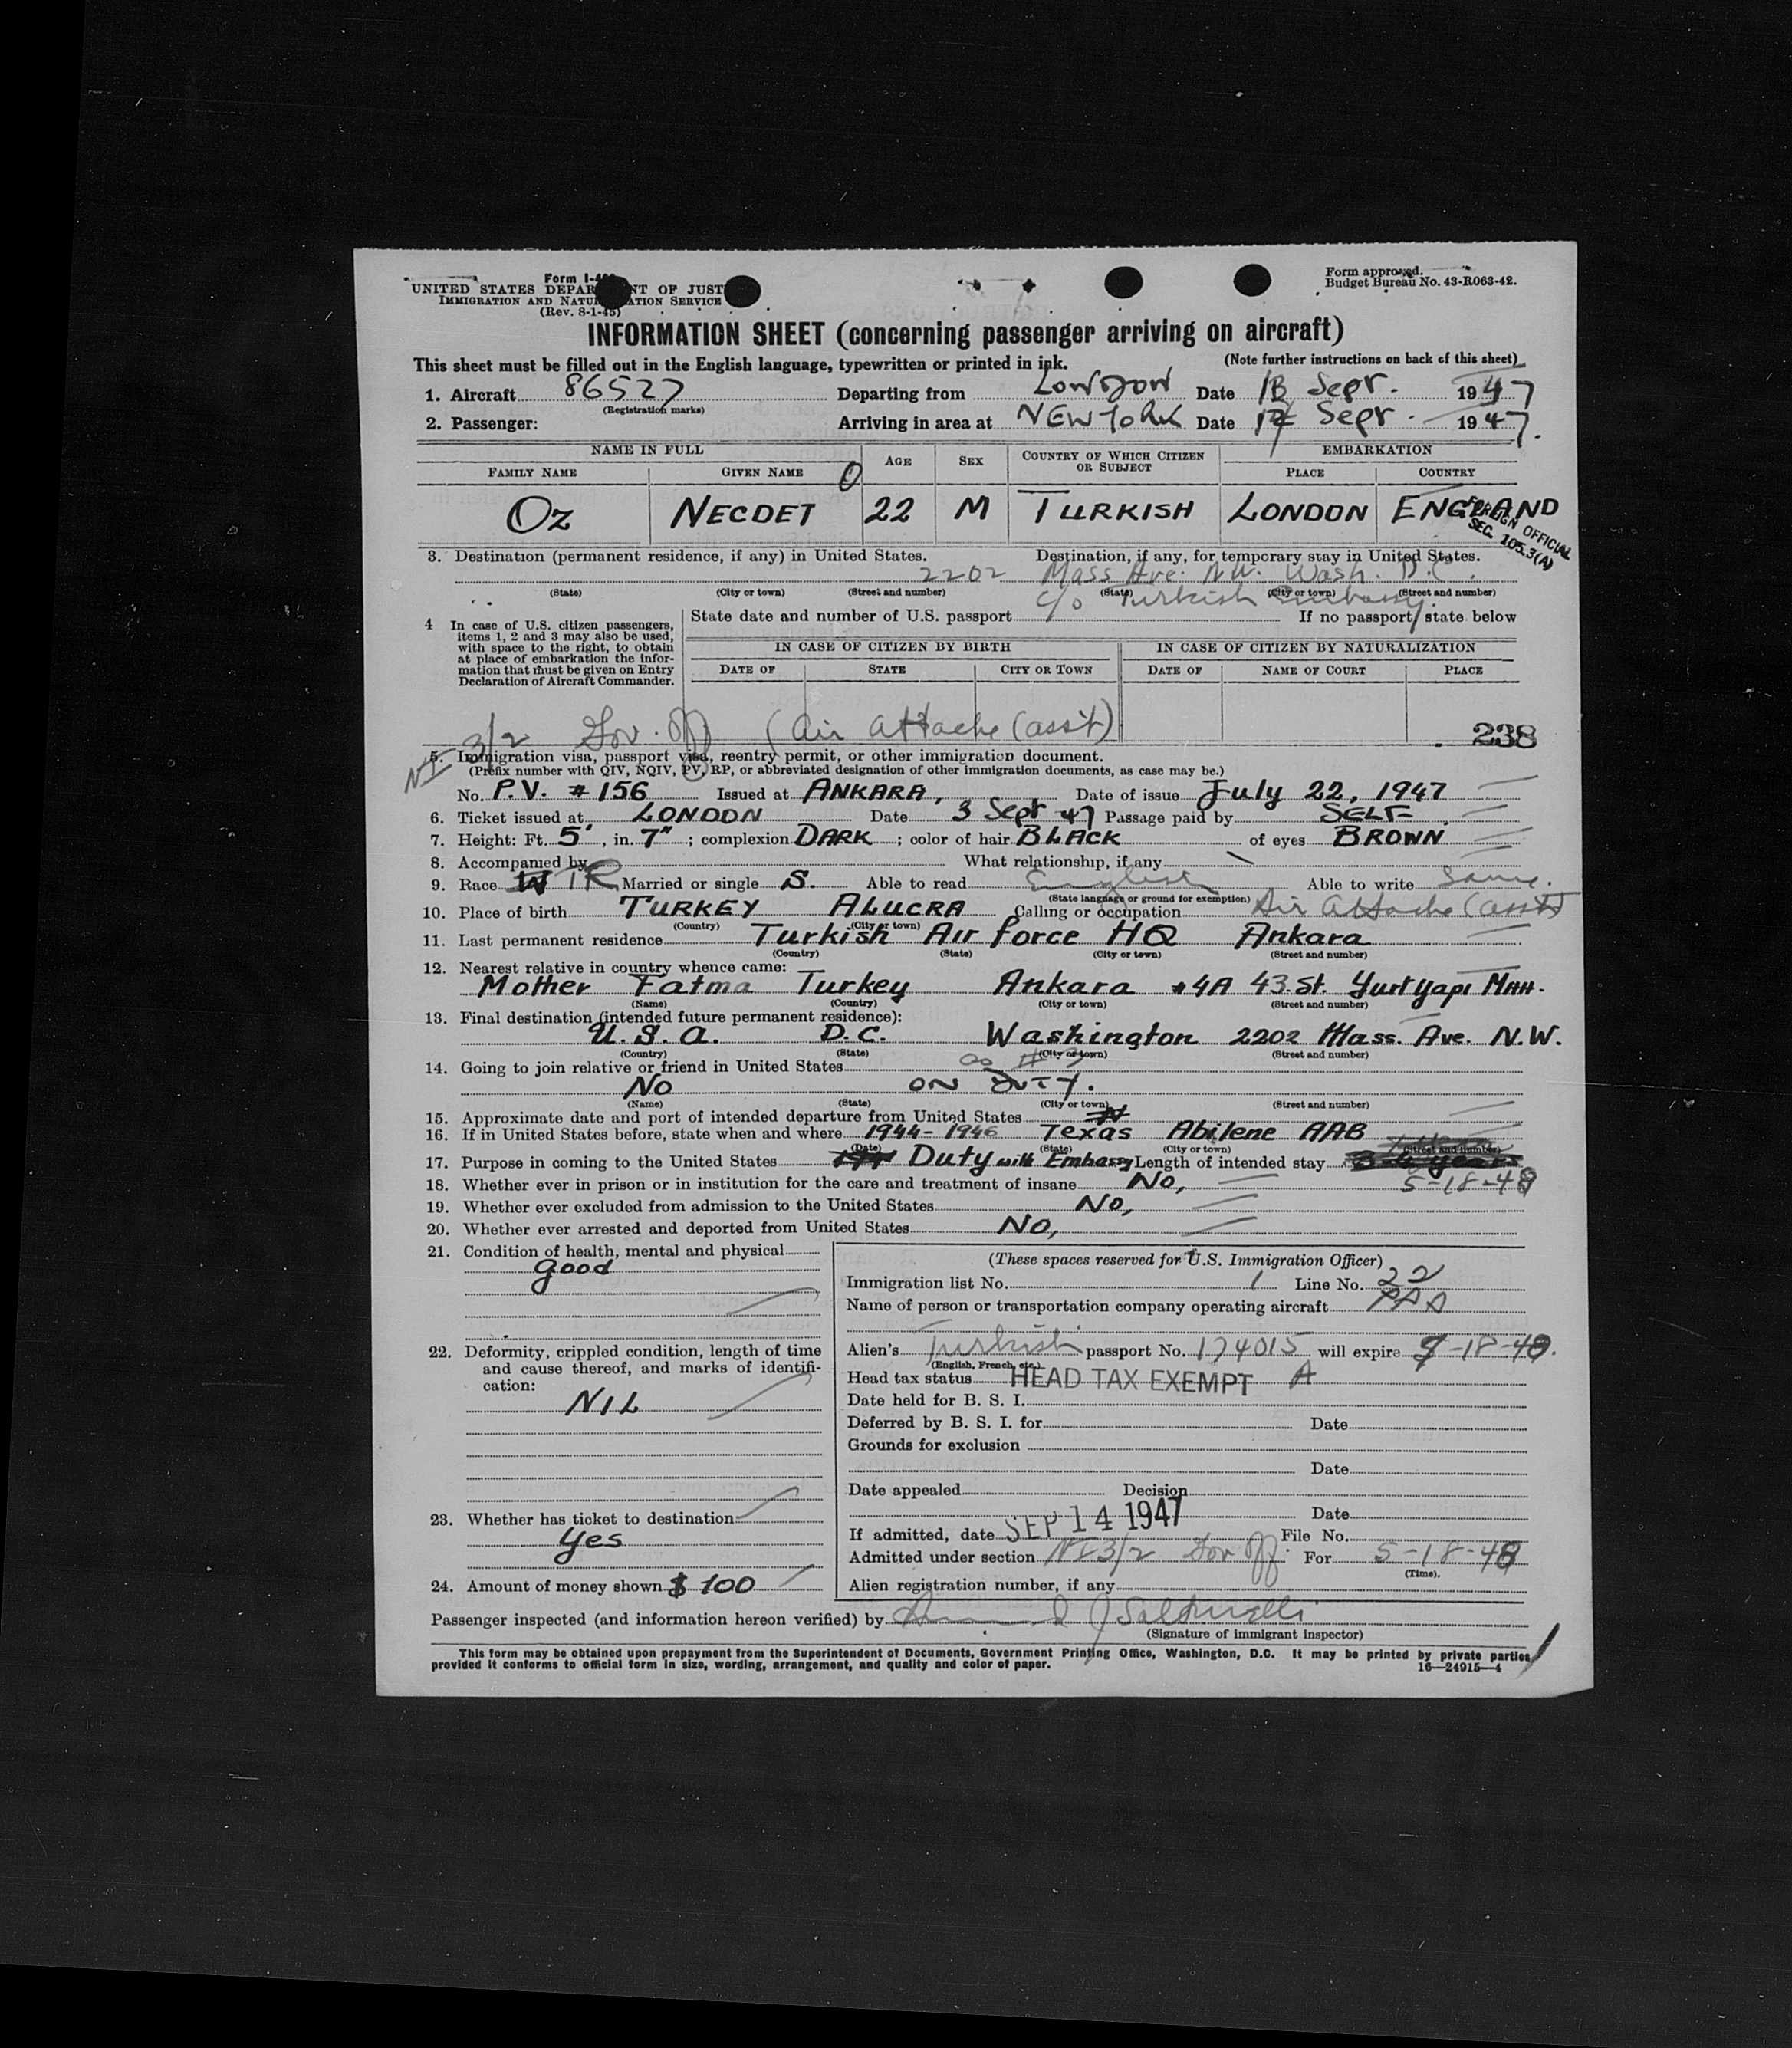 Form I-4
UNITED STATES DEPAR NT OF JUST
IMMIGRATION AND NATU ATION SERVICE
(Rev. 8-1-45)
Form approved.
Budget Bureau No. 43-R063-42.
INFORMATION SHEET (concerning passenger arriving on aircraft)
This sheet must be filled out in the English language, typewritten or printed in ink. (Note further instructions on back of this sheet)
1. Aircraft 86527 Departing from LONDON Date 13 Sept. 1947
(Registration marks)
2. Passenger: Arriving in area at NEW YORK Date Sept. 1947.
NAME IN FULL AGE SEX COUNTRY OF WHICH CITIZEN OR SUBJECT EMBARKATION
FAMILY NAME GIVEN NAME PLACE COUNTRY
OZ NECDET O 22 M TURKISH LONDON ENGLAND
FOREIGN OFFICIAL
SEC. 105.3(A)
3. Destination (permanent residence, if any) in United States. Destination, if any, for temporary stay in United States.
2202 Mass Ave. N.W. Wash. D.C.
(State) (City or town) (Street and number) (State) (City or town) (Street and number)
c/o Turkish Embassy.
4 In case of U.S. citizen passengers, items 1, 2 and 3 may also be used, with space to the right, to obtain at place of embarkation the information that must be given on Entry Declaration of Aircraft Commander.
State date and number of U.S. passport If no passport, state below
IN CASE OF CITIZEN BY BIRTH IN CASE OF CITIZEN BY NATURALIZATION
DATE OF STATE CITY OR TOWN DATE OF NAME OF COURT PLACE
NI 3/2 Gov. off (Air Attache (ass't) 238
5. Immigration visa, passport visa, reentry permit, or other immigration document.
(Prefix number with QIV, NQIV, PV, RP, or abbreviated designation of other immigration documents, as case may be.)
No. P.V. # 156 Issued at ANKARA, Date of issue July 22, 1947
6. Ticket issued at LONDON Date 3 Sept 47 Passage paid by SELF
7. Height: Ft. 5', in. 7"; complexion DARK; color of hair BLACK of eyes BROWN
8. Accompanied by What relationship, if any
9. Race W TR Married or single S. Able to read English Able to write Same.
(State language or ground for exemption)
10. Place of birth TURKEY ALUCRA Calling or occupation Air Attache (ass't)
(Country) (City or town)
11. Last permanent residence Turkish Air Force HQ Ankara
(Country) (State) (City or town) (Street and number)
12. Nearest relative in country whence came:
Mother Fatma Turkey Ankara #4A 43.St. Yurtyapi MAH.
(Name) (Country) (City or town) (Street and number)
13. Final destination (intended future permanent residence):
U.S.A. D.C. Washington 2202 Mass. Ave. N.W.
(Country) (State) (City or town) (Street and number)
14. Going to join relative or friend in United States as # 3
No ON DUTY.
(Name) (State) (City or town) (Street and number)
15. Approximate date and port of intended departure from United States
16. If in United States before, state when and where 1944-1946 Texas Abilene AAB
(Date) (State) (City or town) (Street and number)
17. Purpose in coming to the United States Duty with Embassy Length of intended stay
18. Whether ever in prison or in institution for the care and treatment of insane No, 5-18-48
19. Whether ever excluded from admission to the United States No,
20. Whether ever arrested and deported from United States No,
21. Condition of health, mental and physical
good
22. Deformity, crippled condition, length of time and cause thereof, and marks of identification:
NIL
23. Whether has ticket to destination
Yes
24. Amount of money shown $ 100
(These spaces reserved for U.S. Immigration Officer)
Immigration list No. 1 Line No. 22
Name of person or transportation company operating aircraft PAA
Alien's Turkish passport No. 174015 will expire -18-48.
(English, French, etc.)
Head tax status HEAD TAX EXEMPT A
Date held for B. S. I.
Deferred by B. S. I. for Date
Grounds for exclusion
Date
Date appealed Decision
Date
If admitted, date SEP 14 1947 File No.
Admitted under section NI 3/2 Gov off. For 5-18-48
(Time).
Alien registration number, if any
Passenger inspected (and information hereon verified) by
(Signature of immigrant inspector)
This form may be obtained upon prepayment from the Superintendent of Documents, Government Printing Office, Washington, D.C. It may be printed by private parties
provided it conforms to official form in size, wording, arrangement, and quality and color of paper. 16—24915—4